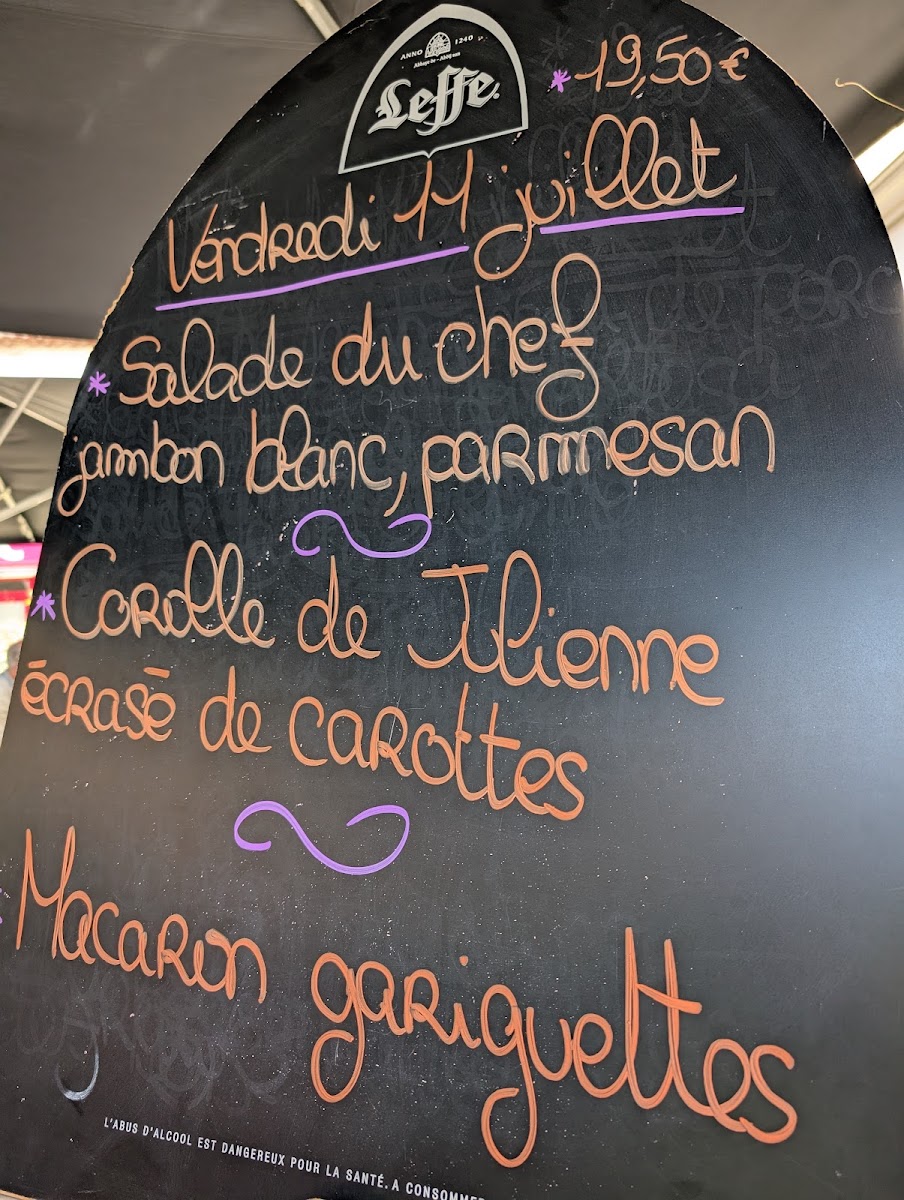 ANNO 1240
Leffe
* 19,50 €
Vendredi 11 juillet
* Salade du chef
jambon blanc, parmesan
* Corolle de Julienne
écrasé de carottes
Macaron gariguettes
L'ABUS D'ALCOOL EST DANGEREUX POUR LA SANTÉ. A CONSOMMER